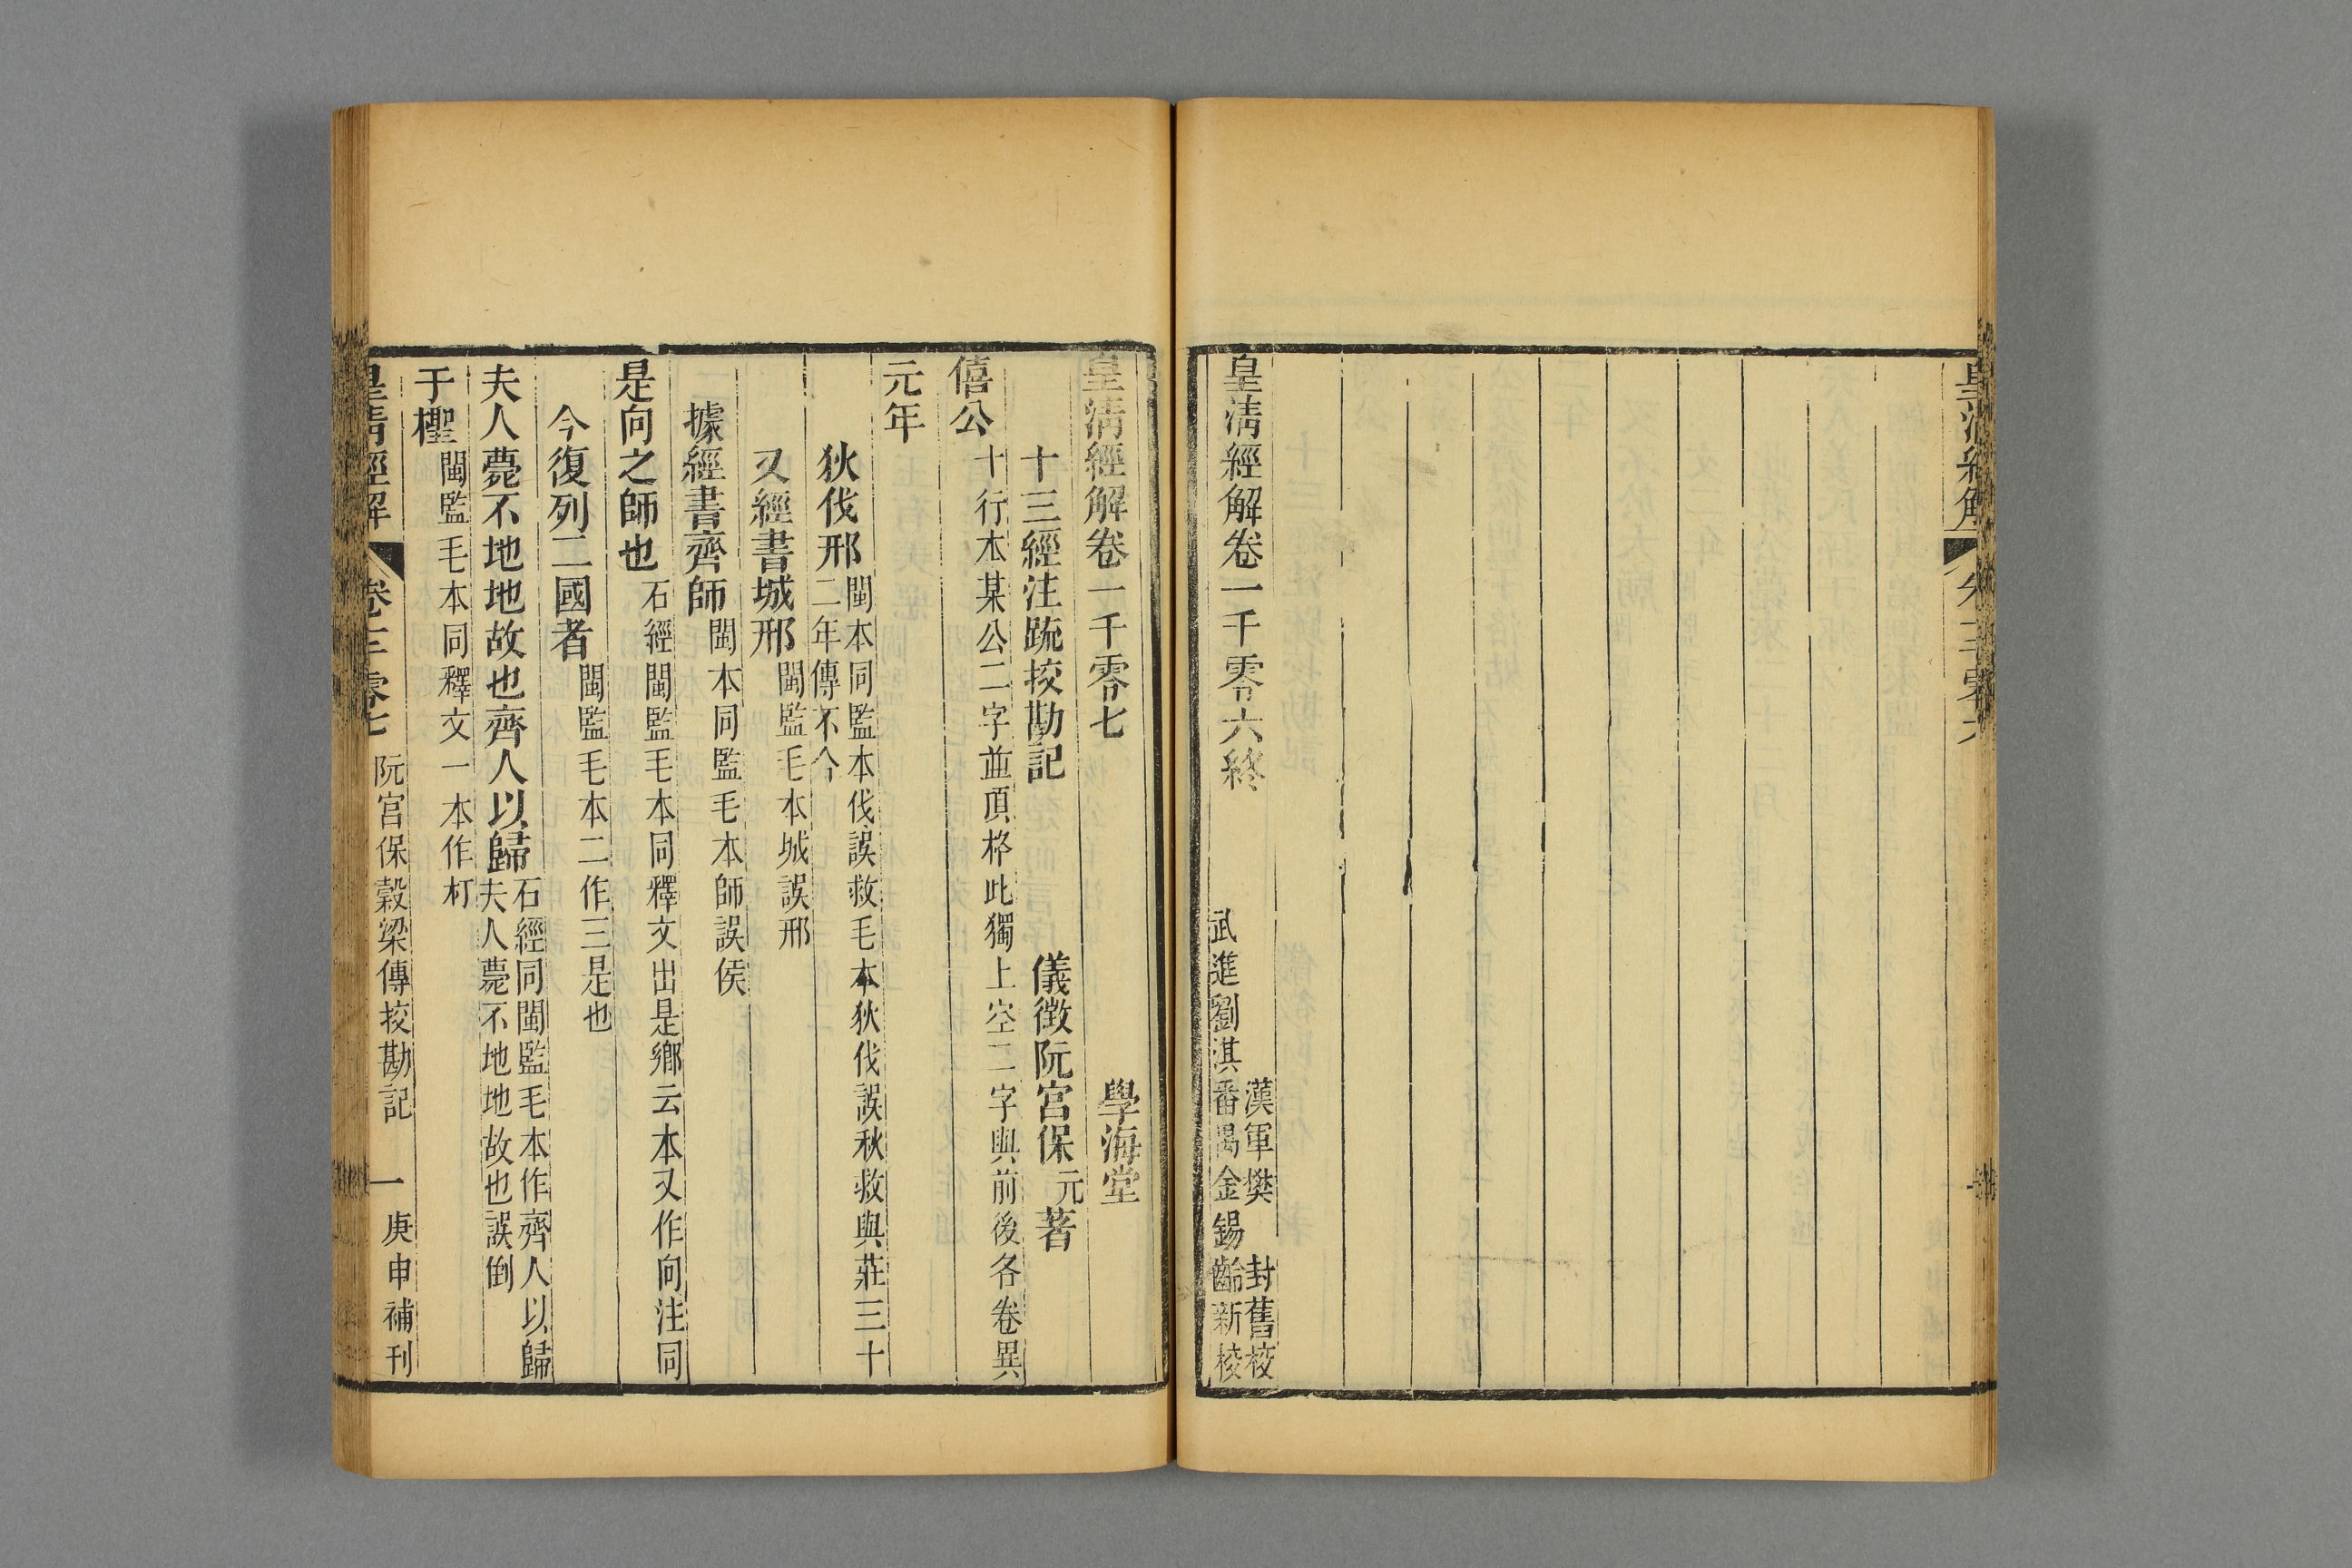 皇清經解
皇清經解卷一千零六終
漢軍樊封舊校
武進劉淇番禺金錫齡新校
皇清經解卷一千零七
學海堂
十三經注䟽挍勘記
儀徵阮宮保元著
僖公
十行本某公二字並頂格此獨上空二字與前後各卷異
元年
狄伐邢閩本同監本伐誤救毛本狄伐誤秋救與莊三十
二年傳不今
又經書城邢閩監毛本城誤邢
據經書齊師閩本同監毛本師誤侯
是向之師也石經閩監毛本同釋文出是鄉云本又作向注同
今復列二國者閩監毛本二作三是也
夫人薨不地地故也齊人以歸石經同閩監毛本作齊人以歸
夫人薨不地地故也誤倒
于檉閩監毛本同釋文一本作朾
皇清經解
卷一千零七
阮宮保穀梁傳挍勘記
一
庚申補刊